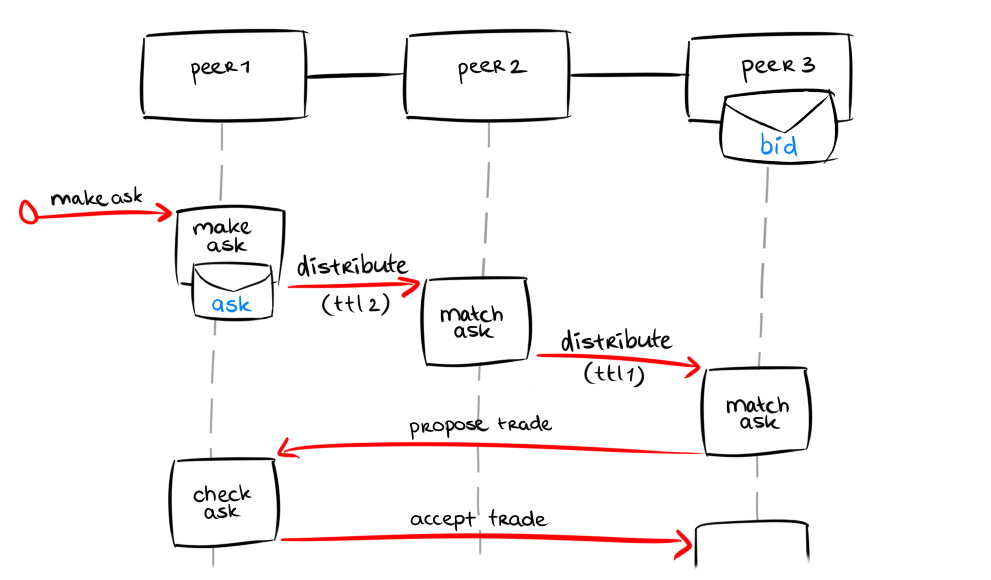 peer 1
peer 2
peer 3
bid
make ask
make
ask
ask
distribute
(ttl 2)
match
ask
distribute
(ttl 1)
match
ask
propose trade
check
ask
accept trade